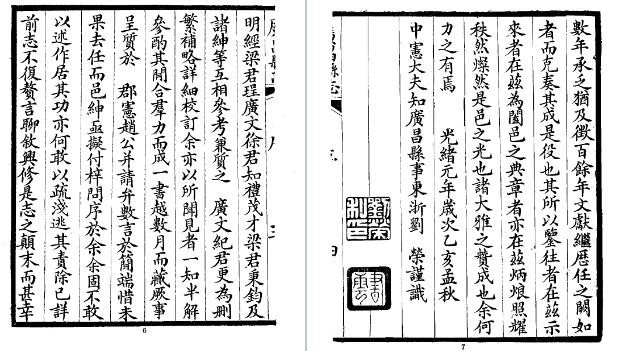 明經梁君珵廣文徐君知禮茂才梁君秉鈞及
諸紳等互相參考兼質之 廣文紀君更為刪
繁補略詳細校訂余亦以所聞見者一知半解
參酌其間合羣力而成一書越數月而蕆厥事
呈質於 郡憲趙公并請弁數言於簡端惜未
果去任而邑紳亟擬付梓問序於余余固不敢
以述作居其功亦何敢以疏淺逃其責除已詳
前志不復贅言聊敘興修是志之顛末而甚幸
6
數年承乏猶及徵百餘年文獻繼歷任之闕如
者而克奏其成是役也其所以鑒往者在茲示
來者在茲為闔邑之典章者亦在茲炳烺照耀
秩然燦然是邑之光也諸大雅之贊成也余何
力之有焉 光緒元年歲次乙亥孟秋
中憲大夫知廣昌縣事東浙劉 榮謹識
7